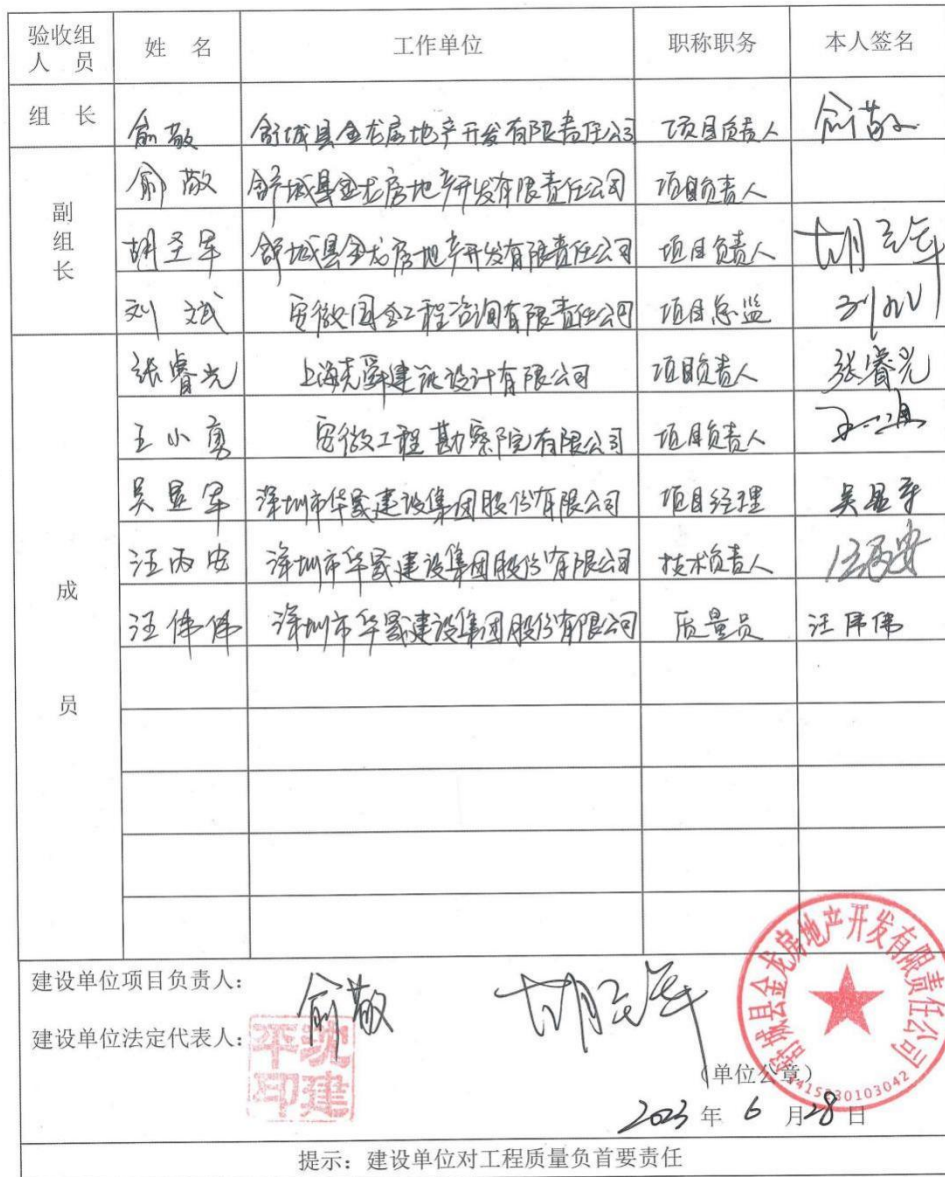 验收组人 员 姓 名 工作单位 职称职务 本人签名
组 长 俞敬 舒城县金龙房地产开发有限责任公司 项目负责人 俞敬
副组长 俞敬 舒城县金龙房地产开发有限责任公司 项目负责人
胡圣军 舒城县金龙房地产开发有限责任公司 项目负责人 胡圣军
刘斌 安徽国金工程咨询有限责任公司 项目总监
成员 张睿光 上海尧舜建筑设计有限公司 项目负责人 张睿光
王小勇 安徽工程勘察院有限公司 项目负责人
吴显军 深圳市华晟建设集团股份有限公司 项目经理 吴显军
汪丙安 深圳市华晟建设集团股份有限公司 技术负责人 汪丙安
汪伟伟 深圳市华晟建设集团股份有限公司 质量员 汪伟伟
建设单位项目负责人: 俞敬 胡圣军
建设单位法定代表人: 沈建平印
舒城县金龙房地产开发有限责任公司
(单位公章)
2023 年 6 月 28 日
提示：建设单位对工程质量负首要责任